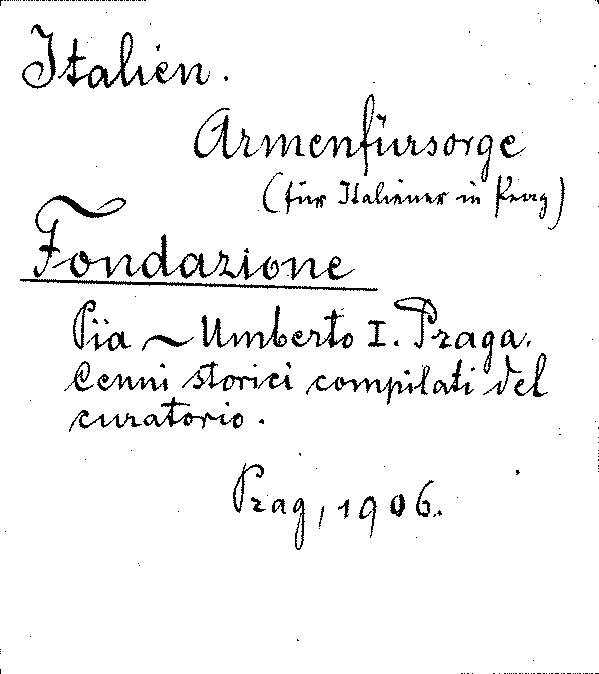 Italien.
Armenfürsorge
(für Italiener in Prag)
Fondazione
Pia ~ Umberto I. Praga.
Cenni storici compilati del
curatorio.
Prag, 1906.